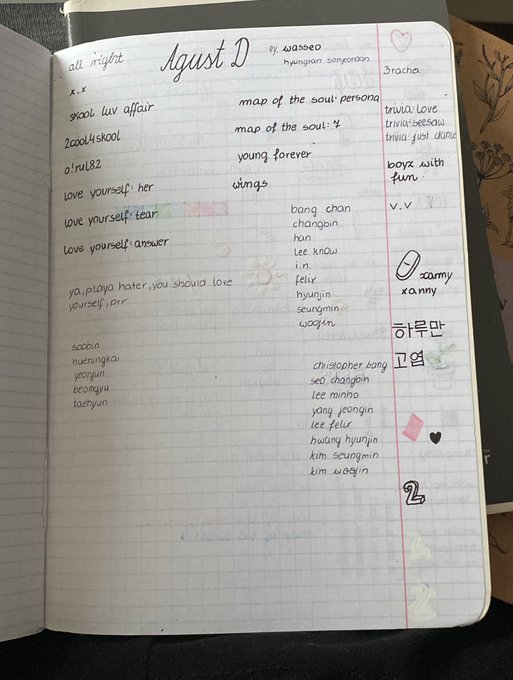 all right
Agust D
ey, wasseo
hyungtan sonyeondan
x.x
skool luv affair
2cool4skool
o!rul82
love yourself: her
love yourself: tear
love yourself: answer
map of the soul: persona
map of the soul: 7
young forever
wings
ya, playa hater, you should love
yourself, brr
soobin
hueningkai
yeonjun
beomgyu
taehyun
bang chan
changbin
han
lee know
i.n.
felix
hyunjin
seungmin
woojin
christopher bang
seo changbin
lee minho
yang jeongin
lee felix
hwang hyunjin
kim seungmin
kim woojin
3racha
trivia: love
trivia: seesaw
trivia: just dance
boyz with
fun
v.v
xanny
xanny
하루만
고엽
2